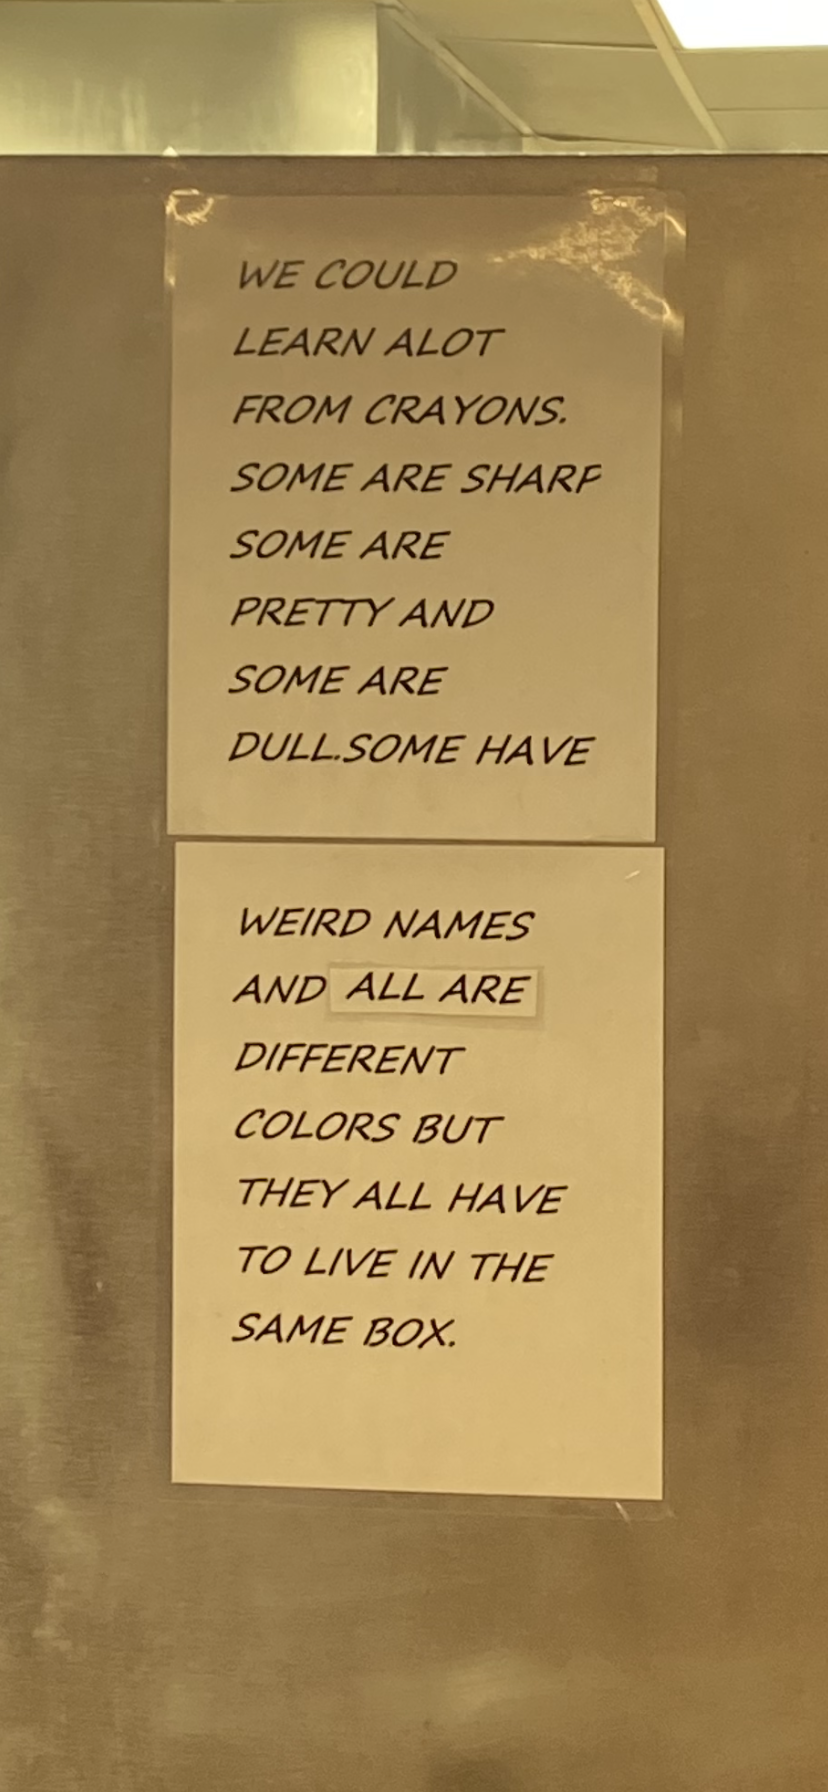 WE COULD
LEARN ALOT
FROM CRAYONS.
SOME ARE SHARP
SOME ARE
PRETTY AND
SOME ARE
DULL.SOME HAVE
WEIRD NAMES
AND ALL ARE
DIFFERENT
COLORS BUT
THEY ALL HAVE
TO LIVE IN THE
SAME BOX.